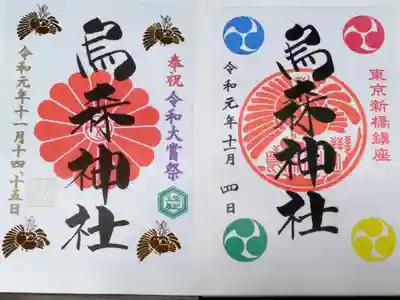 奉祝 令和大嘗祭
烏森神社
令和元年十一月十四、十五日
東京新橋鎮座
烏森神社
令和元年十一月 四日